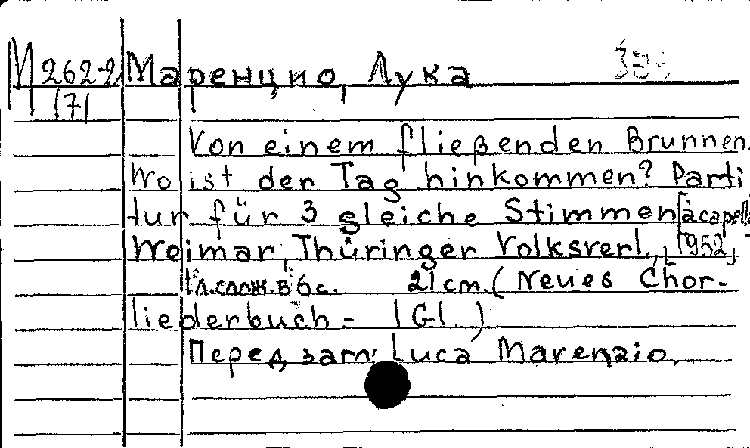 М262-2 Маренцио, Лука
/71
Von einem fließenden Brunnen.
Wo ist der Tag hinkommen? Parti
tur für 3 gleiche Stimmen [a capell
Weimar, Thüringer Volksverl., [1952]
1 л. слож. в 6 с. 21 cm. (Neues Chor-
liederbuch - 1 Gl.)
Перед загл: Luca Marenzio.